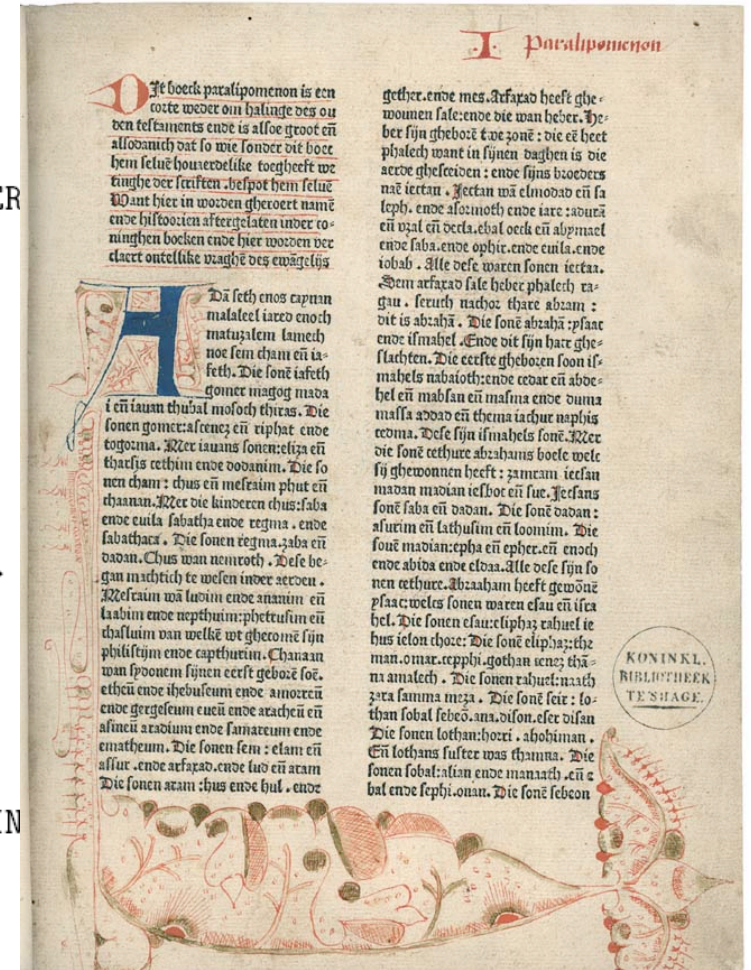 I Paralipomenon
Dit boeck paralipomenon is een
corte weder om halinge des ou
den testaments ende is alsoe groot eñ
alsodanich dat so wie sonder dit boec
hem seluē houaerdelike toegheeft we
tinghe der scriften .bespot hem seluē
Want hier in worden gheroert namē
ende historien aftergelaten inder co⸗
ninghen boeken ende hier worden ver
claert ontellike vraghē des ewāgelijs
ADā seth enos caynan
malaleel iared enoch
matuzalem lamech
noe sem cham eñ ia⸗
feth. Die sonē iafeth
gomer magog mada
i eñ iauan thubal mosoch thiras. Die
sonen gomer:ascenez eñ riphat ende
togorma. Mer iauans sonen:eliza eñ
tharsis cethim ende dodanim. Die so
nen cham : chus eñ mesraim phut eñ
chaanan. Mer die kinderen chus:saba
ende euila sabatha ende regma . ende
sabathaca . Die sonen regma.zaba eñ
dadan. Chus wan nemroth . Dese be⸗
gan machtich te wesen inder aerden .
Mesraim wā ludim ende ananim eñ
laabim ende nepthuim:phetrusim eñ
chasluim van welkē wt ghecomē sijn
philistijm ende capthurim. Chanaan
wan sydonem sijnen eerst geborē soē.
etheū ende ihebuseum ende amorreū
ende gergeseum eueū ende aracheū eñ
asineū aradium ende samareum ende
ematheum. Die sonen sem : elam eñ
assur .ende arfaxad.ende lud eñ aram
Die sonen aram :hus ende hul . ende
gether.ende mes. Arfaxad heeft ghe⸗
wounen sale:ende die wan heber. He⸗
ber sijn gheborē twe zonē : die eē heet
phalech want in sijnen daghen is die
aerde ghesceiden : ende sijns broeders
naē iectan . Jectan wā elmodad eñ sa
leph. ende asormoth ende iare :adurā
eñ vzal eñ decla.ebal oeck eñ abymael
ende saba.ende ophir.ende euila.ende
iobab . Alle dese waren sonen iectaa.
Sem arfaxad sale heber phalech ra⸗
gau . seruch nachor thare abram :
dit is abrahā . Die sonē abrahā :ysaac
ende ismahel .Ende dit sijn hare ghe⸗
slachten. Die eerste gheboren soon is⸗
mahels nabaioth:ende cedar eñ abde⸗
hel eñ mabsan eñ masma ende duma
massa addad eñ thema iachur naphis
cedma. Dese sijn ismahels sonē. Mer
die sonē cethure abrahams boele welc
sij ghewonnen heeft : zamram iecsan
madan madian iesboc eñ sue. Jecsans
sonē saba eñ dadan. Die sonē dadan :
asurim eñ lathusim eñ loomim. Die
souē madian:epha eñ epher.eñ enoch
ende abida ende eldaa. Alle dese sijn so
nen cethure. Abraaham heeft gewōnē
ysaac:welcs sonen waren esau eñ isra
hel. Die sonen esau:eliphaz rahuel ie
hus ielon chore: Die sonē eliphaz:the
man.omar.cepphi.gothan cenez thā⸗
na amalech . Die sonen rahuel:naath
zara samma meza . Die sonē seir : lo⸗
than sobal sebeō.ana.dison.eser disan
Die sonen lothan:horri . ahohiman .
Eñ lothans suster was thamna. Die
sonen sobal:alian ende manaath .eñ e
bal ende sephi.onan. Die sonē sebeon
KONINKL.
BIBLIOTHEEK
TE'SHAGE.
ER
IN